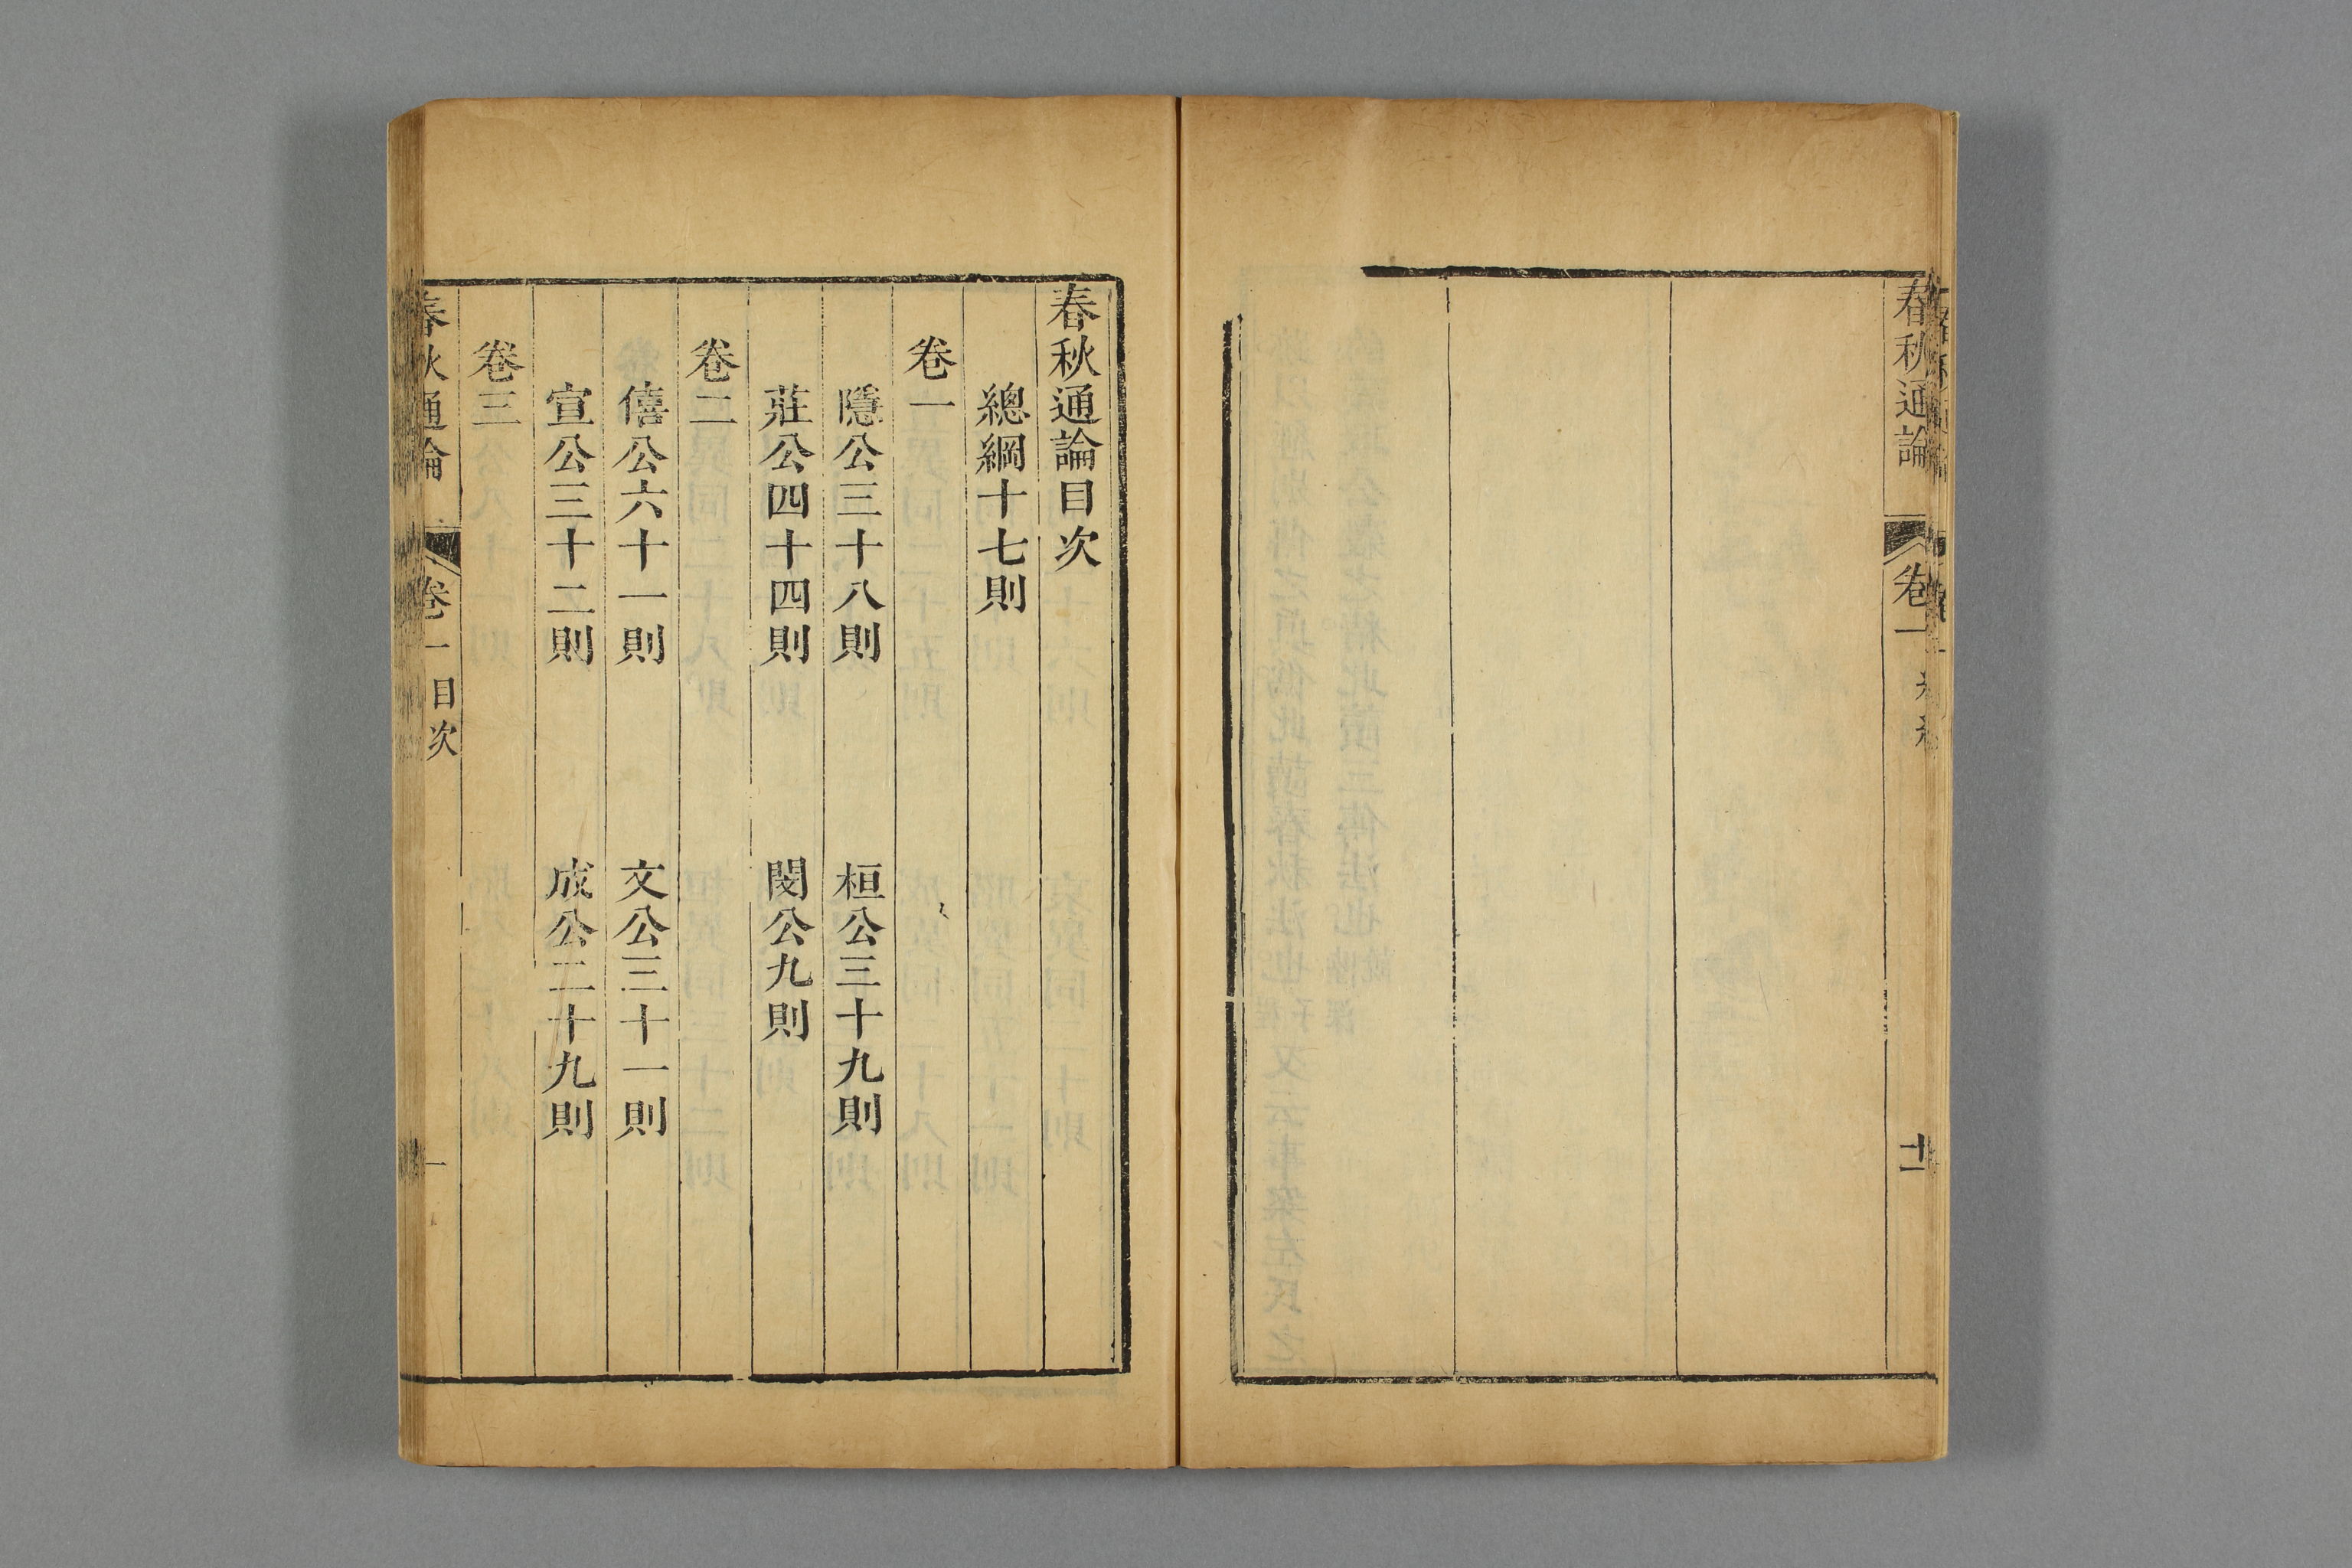 春秋通論
卷一
十一
春秋通論目次
總綱十七則
卷一
隱公三十八則　桓公三十九則
莊公四十四則　閔公九則
卷二
僖公六十一則　文公三十一則
宣公三十二則　成公二十九則
卷三
春秋通論
卷一
目次
一